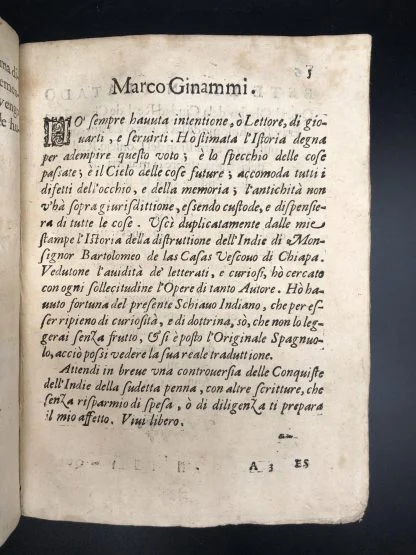 5
Marco Ginammi.
HO' sempre hauuta intentione, ò Lettore, di gio-
uarti, e seruirti. Hò stimata l'Istoria degna
per adempire questo voto; è lo specchio delle cose
passate; è il Cielo delle cose future; accomoda tutti i
difetti dell'occhio, e della memoria; l'antichità non
v'hà sopra giurisdittione, essendo custode, e dispensie-
ra di tutte le cose. Uscì duplicatamente dalle mie
stampe l'Istoria della distruttione dell'Indie di Mon-
signor Bartolomeo de las Casas Vescouo di Chiapa.
Vedutone l'auidità de' letterati, e curiosi, hò cercato
con ogni sollecitudine l'Opere di tanto Autore. Hò ha-
uuto fortuna del presente Schiauo Indiano, che per es-
ser ripieno di curiosità, e di dottrina, sò, che non lo leg-
gerai senza frutto, & si è posto l'Originale Spagnuo-
lo, acciò possi vedere la sua reale traduttione.
Attendi in breue vna controuersia delle Conquiste
dell'Indie della sudetta penna, con altre scritture, che
senza risparmio di spesa, ò di diligenza ti prepara
il mio affetto. Viui libero.
A 3 ES